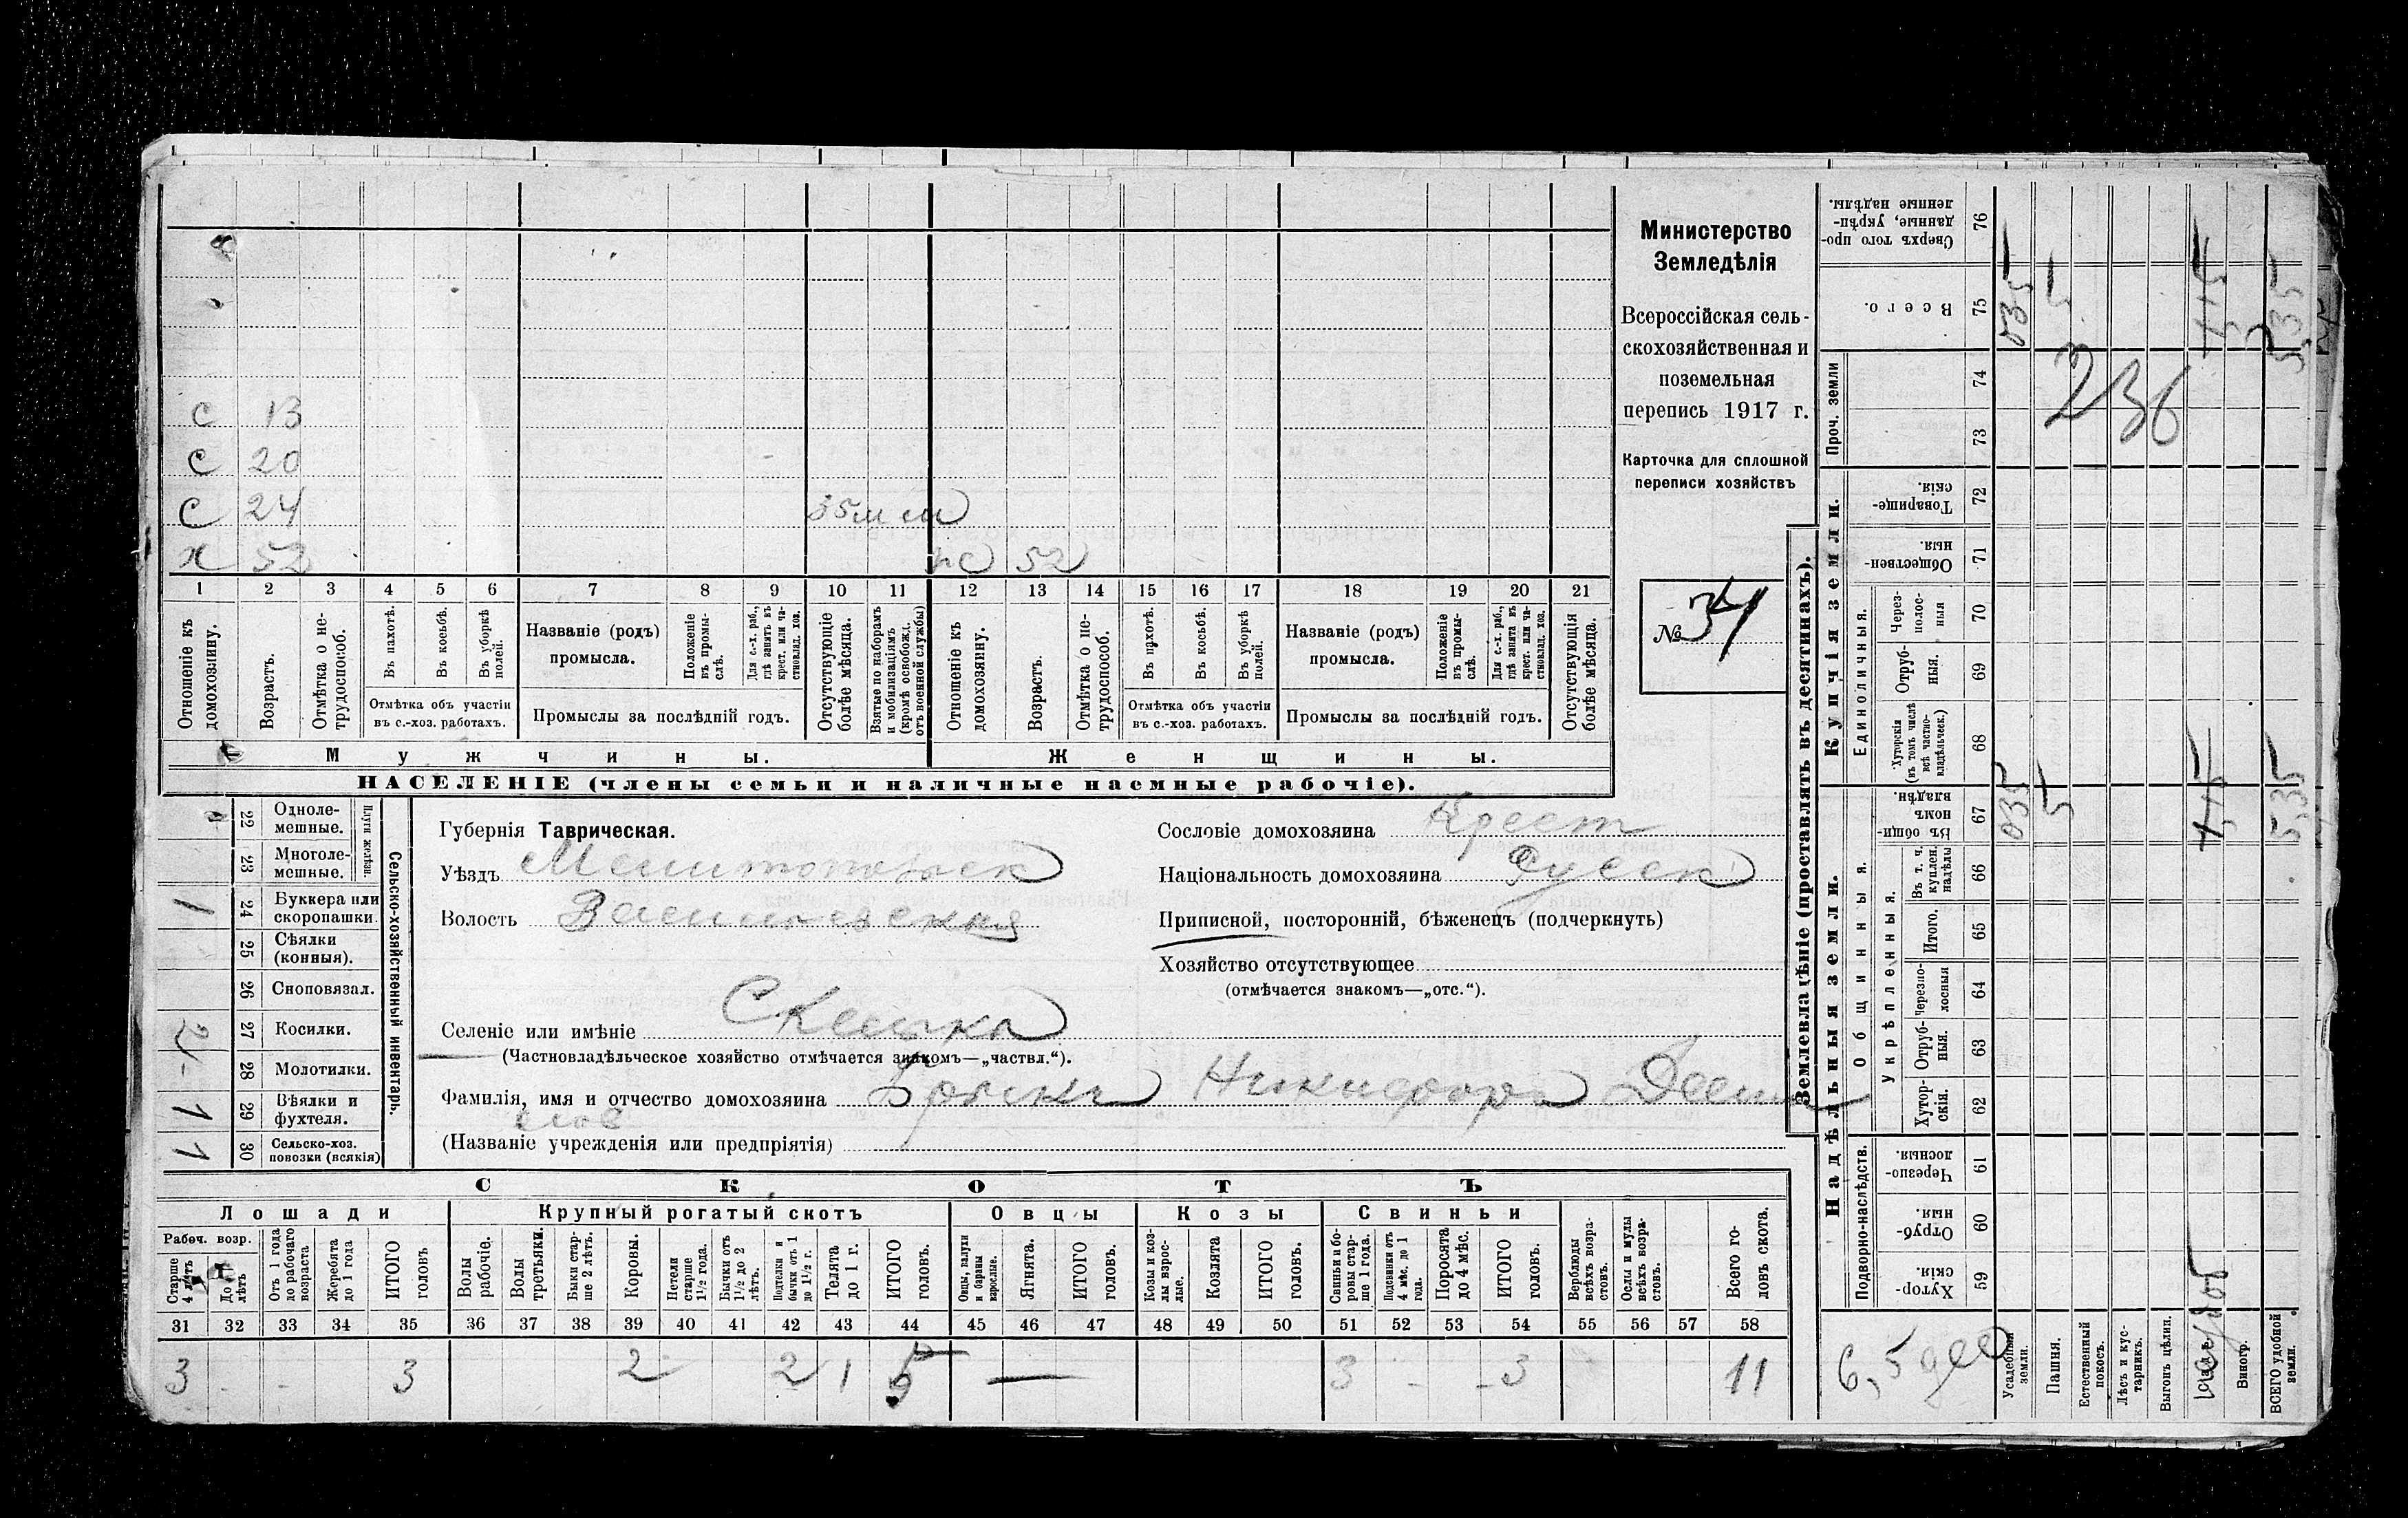 Министерство
Земледѣлія
Всероссійская сель-
скохозяйственная и
поземельная
перепись 1917 г.
Карточка для сплошной
переписи хозяйствъ
№ 34
с 13
с 20
с 24
х 52 52
1 2 3 4 5 6 7 8 9 10 11 12 13 14 15 16 17 18 19 20 21
Отношеніе къ домохозяину.
Возрастъ.
Отмѣтка о не-трудоспособ.
Въ пахотѣ.
Въ косьбѣ.
Въ уборкѣ полей.
Отмѣтка объ участіи въ с.-хоз. работахъ.
Названіе (родъ) промысла.
Положеніе въ промы-слѣ.
Для с.-х. раб., гдѣ занятъ въ крест. или ча-стновлад. хоз.
Промыслы за послѣдній годъ.
Отсутствующіе болѣе мѣсяца.
Взятые по наборамъ и мобилизаціямъ (кромѣ освобожд. отъ военной службы)
Отношеніе къ домохозяину.
Возрастъ.
Отмѣтка о не-трудоспособ.
Въ пахотѣ.
Въ косьбѣ.
Въ уборкѣ полей.
Отмѣтка объ участіи въ с.-хоз. работахъ.
Названіе (родъ) промысла.
Положеніе въ промы-слѣ.
Для с.-х. раб., гдѣ занята въ крест. или ча-стновлад. хоз.
Промыслы за послѣдній годъ.
Отсутствующія болѣе мѣсяца.
Мужчины. Женщины.
НАСЕЛЕНІЕ (члены семьи и наличные наемные рабочіе).
Сельско-хозяйственный инвентарь.
Плуги желѣзн.
22 Одноле-мешные.
23 Многоле-мешные.
24 Буккера или скоропашки. 1
25 Сѣялки (конныя).
26 Сноповязал.
27 Косилки.
28 Молотилки.
29 Вѣялки и фухтеля. 1
30 Сельско-хоз. повозки (всякія) 1
Губернія Таврическая.
Уѣздъ Мелитопольск
Волость Васильевская
Селеніе или имѣніе Скельки
(Частновладѣльческое хозяйство отмѣчается знакомъ—„частвл.“).
Фамилія, имя и отчество домохозяина Никифоръ
(Названіе учрежденія или предпріятія)
Сословіе домохозяина Крест
Національность домохозяина Русск
Приписной, посторонній, бѣженецъ (подчеркнуть)
Хозяйство отсутствующее
(отмѣчается знакомъ—„отс.“).
СКОТЪ
Лошади Крупный рогатый скотъ Овцы Козы Свиньи
Рабоч. возр.
Старше 4 лѣтъ
До 4 лѣтъ
Отъ 1 года до рабочаго возраста
Жеребята до 1 года
ИТОГО головъ
Волы рабочіе.
Волы третьяки.
Быки стар-ше 2 лѣтъ.
Коровы.
Нетели старше 1½ года.
Бычки отъ 1½ до 2 лѣтъ.
Подтелки и бычки отъ 1 до 1½ г.
Телята до 1 г.
ИТОГО головъ.
Овцы, валухи и бараны взрослые.
Ягнята.
ИТОГО головъ.
Козы и коз-лы взрос-лые.
Козлята
ИТОГО головъ.
Свиньи и бо-ровы стар-ше 1 года.
Подсвинки отъ 4 мѣс. до 1 года.
Поросята до 4 мѣс.
ИТОГО головъ.
Верблюды всѣхъ возра-стовъ.
Ослы и мулы всѣхъ возра-стовъ.
Всего го-ловъ скота.
31 32 33 34 35 36 37 38 39 40 41 42 43 44 45 46 47 48 49 50 51 52 53 54 55 56 57 58
3 3 2 2 1 5 — 3 3 11
Землевладѣніе (проставлять въ десятинахъ).
Надѣльныя земли. Купчія земли. Проч. земли
Подворно-наслѣдств.
Общинныя.
Укрѣпленныя.
Единоличныя.
59 Хутор-скія.
60 Отруб-ныя.
61 Черезпо-лосныя.
62 Хутор-скія.
63 Отруб-ныя.
64 Черезпо-лосныя
65 Итого.
66 Въ т. ч. куплен. надѣлы
67 Въ общин-номъ владѣн.
68 Хуторскія (въ томъ числѣ всѣ частно-владѣльческ.)
69 Отруб-ныя.
70 Через-полос-ныя
71 Обществен-ныя.
72 Товарище-скія.
73
74
75 Всего.
76 Сверхъ того про-данные, укрѣп-ленные надѣлы.
Усадебныя земли. 035 035
Пашня. 5 5
Естественный покосъ.
Лѣсъ и кус-тарникъ.
Выгонъ цѣлин.
Виногр.
ВСЕГО удобной земли. 5,35 5,35
236
6,5 дес